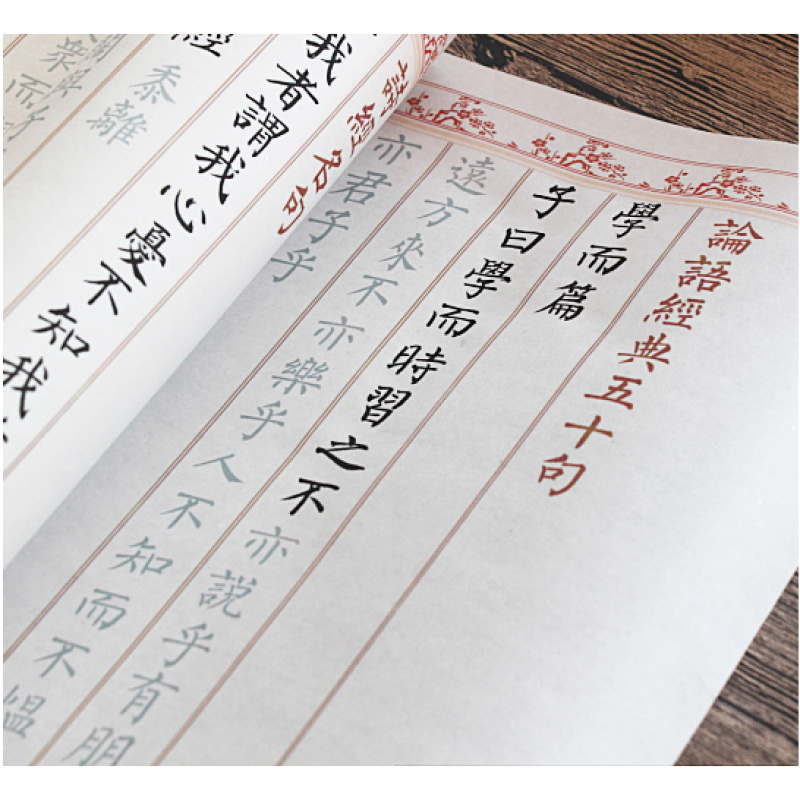 論語經典五十句
學而篇
子曰學而時習之不亦說乎有朋
遠方來不亦樂乎人不知而不慍
亦君子乎
詩經名句
我者謂我心憂不知我
經
黍離
衆
而